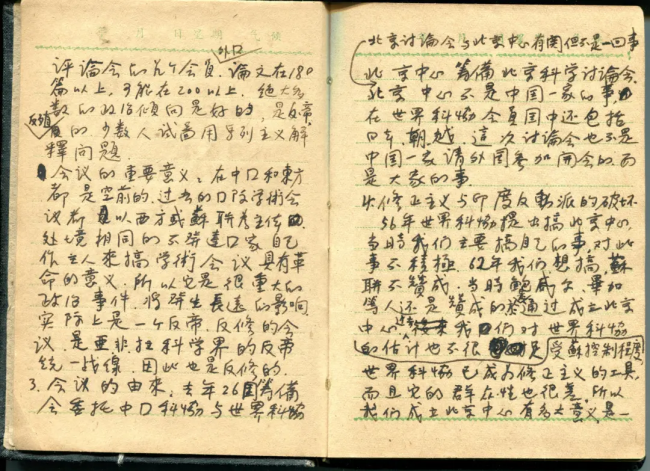 外口
评論会的九个会员。論文在180
篇以上,可能在200以上。绝大多
数的政治倾向是好的,是反帝
反殖
的。少数人试图用马列主义解
釋问题。
会议的重要意义:在中口和東方
都是空前的。过去的口际学術会
议都以西方或蘇联為主体
处境相同的不発達口家自己
作主人來搞学術会议具有革
命的意义。所以它是很重大的
政治事件,将發生長遠的影响。
实际上是一个反帝、反修的会
议,是亚非拉科学界的反帝
统一战線。因此也是反修的。
3. 会议的由來:去年26国筹備
会委托中口科协与世界科协
北京讨論会与北京中心有関但不是一回事
北京中心筹備北京科学讨論会。
北京中心不是中国一家的事
在世界科協会員国中还包括
日本、朝、越。这次讨論会也不是
中国一家请外国参加開会的。而
是大家的事。
修正主义与印度反動派的破坏
56年世界科協提出搞北京中心。
当時我们主要搞自己的事,对此
事不積極。62年我们想搞,蘇
联不贊成。当時鲍威尔、畢加
等人还是贊成的。通过成立北京
中心。过去我们对世界科協
的估计也不很 受蘇控制程度
世界科協已成為修正主义的工具,
而且它的群众性也很差。所以
我们成立北京中心有多大意义,是一